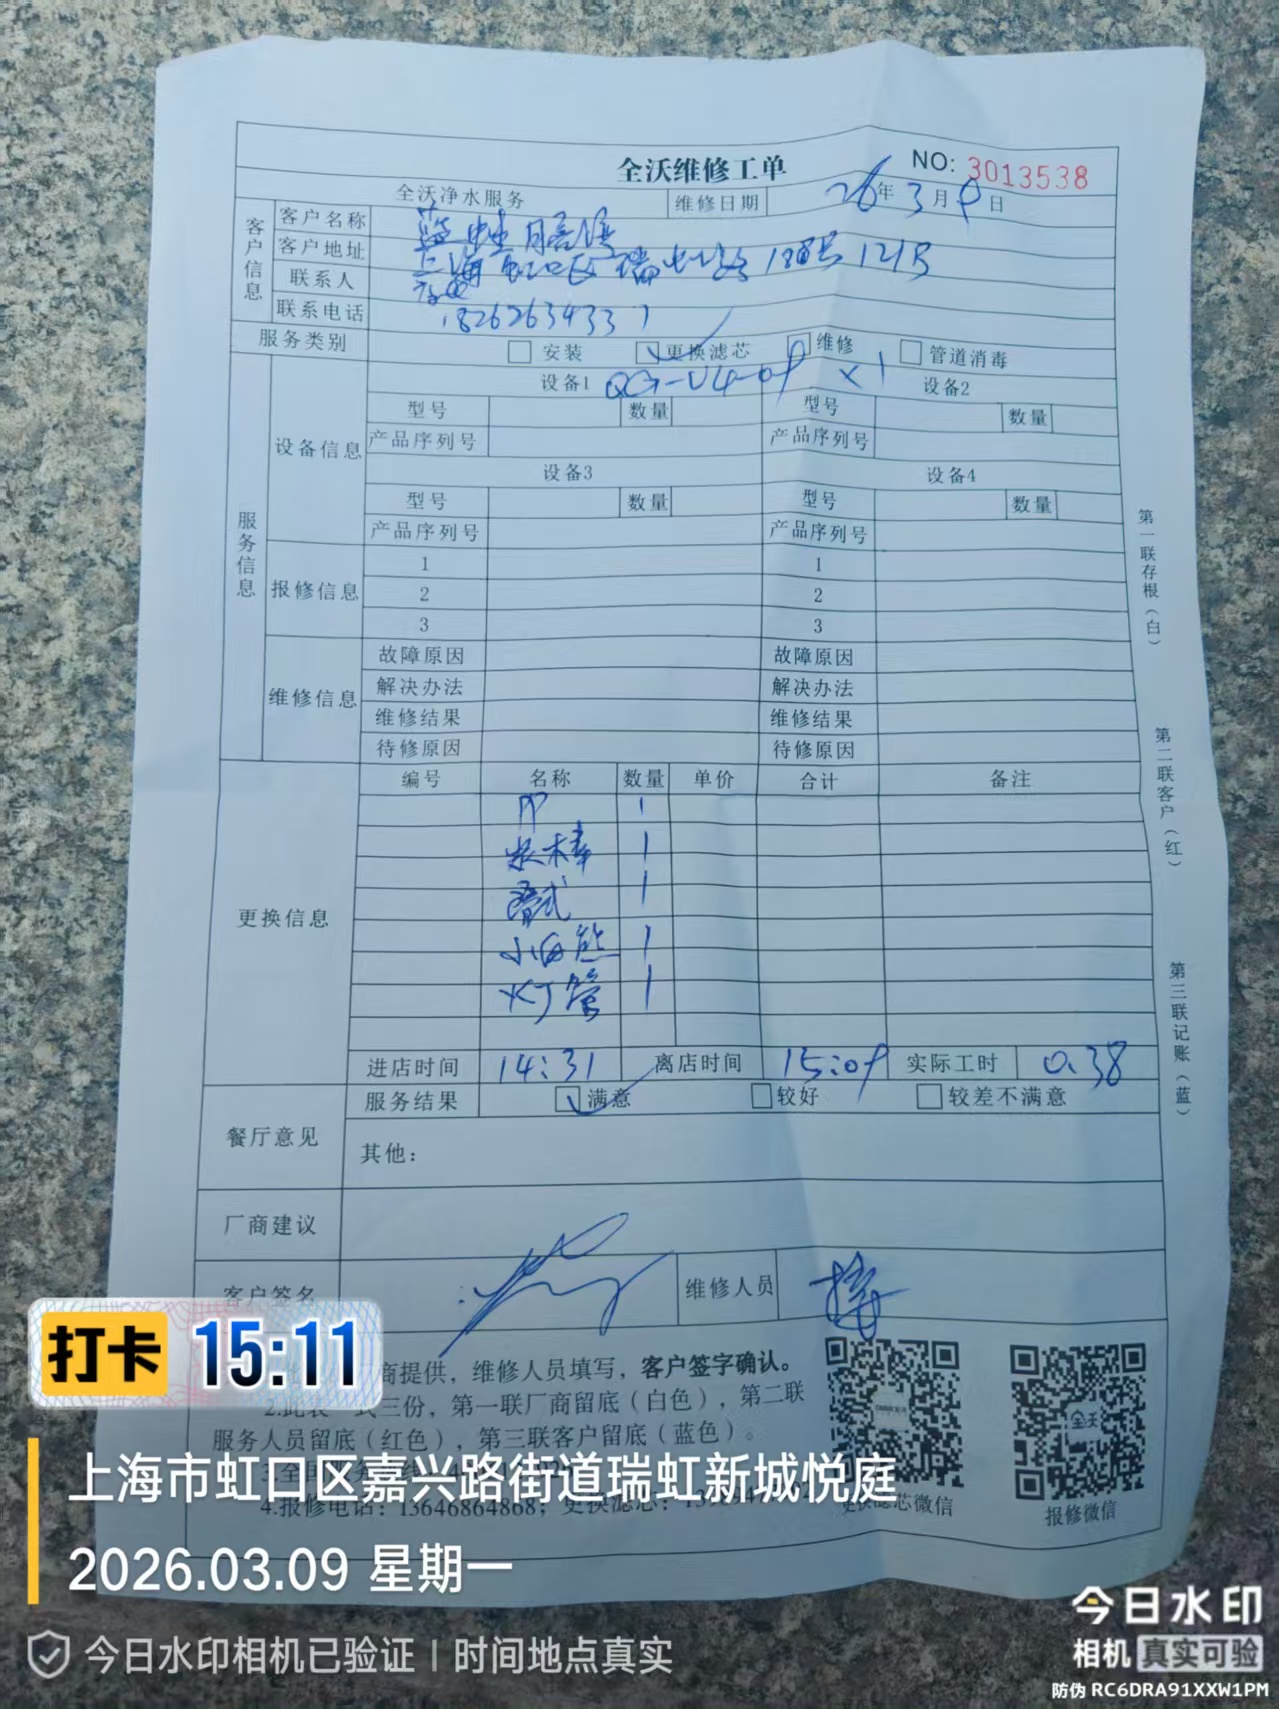 全沃维修工单
NO: 3013538
全沃净水服务 维修日期 26年3月9日
客户信息
客户名称
客户地址 上海虹口区瑞虹路188号121B
联系人
联系电话 18262634331
服务类别 安装 更换滤芯 维修 管道消毒
服务信息
设备信息
设备1 QG-U4-09 ×1 设备2
型号 数量 型号 数量
产品序列号 产品序列号
设备3 设备4
型号 数量 型号 数量
产品序列号 产品序列号
报修信息
1 1
2 2
3 3
维修信息
故障原因 故障原因
解决办法 解决办法
维修结果 维修结果
待修原因 待修原因
更换信息
编号 名称 数量 单价 合计 备注
PP 1
炭棒 1
1
1
灯管 1
进店时间 14:31 离店时间 15:09 实际工时 0.38
餐厅意见
服务结果 满意 较好 较差不满意
其他：
厂商建议
客户签名 维修人员
商提供，维修人员填写，客户签字确认。
2.此表一式三份，第一联厂商留底（白色），第二联
服务人员留底（红色），第三联客户留底（蓝色）。
4.报修电话：13646864868；更换滤芯：
更换滤芯微信
报修微信
全沃
第一联存根（白）
第二联客户（红）
第三联记账（蓝）
打卡 15:11
上海市虹口区嘉兴路街道瑞虹新城悦庭
2026.03.09 星期一
今日水印相机已验证 | 时间地点真实
今日水印
相机 真实可验
防伪 RC6DRA91XXW1PM